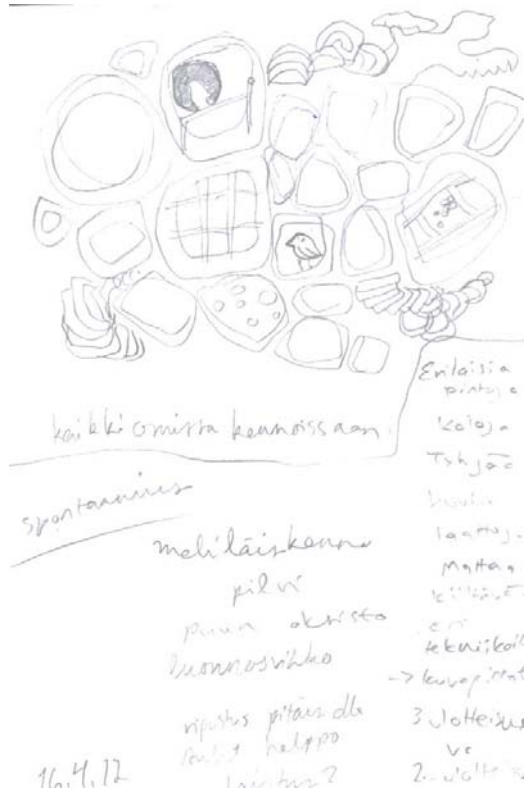 kaikki omissa kennoissaan
spontaanius
mehiläiskenno
pilvi
puun oksisto
luonnosvihko
ripustus pitäisi olla
helppo
16.4.12
Erilaisia
pintoja
koloja
Tyhjää
laattoja
Mattaa
kiiltävää
eri
-> kuvapinnat
3 ulotteisuus
vs